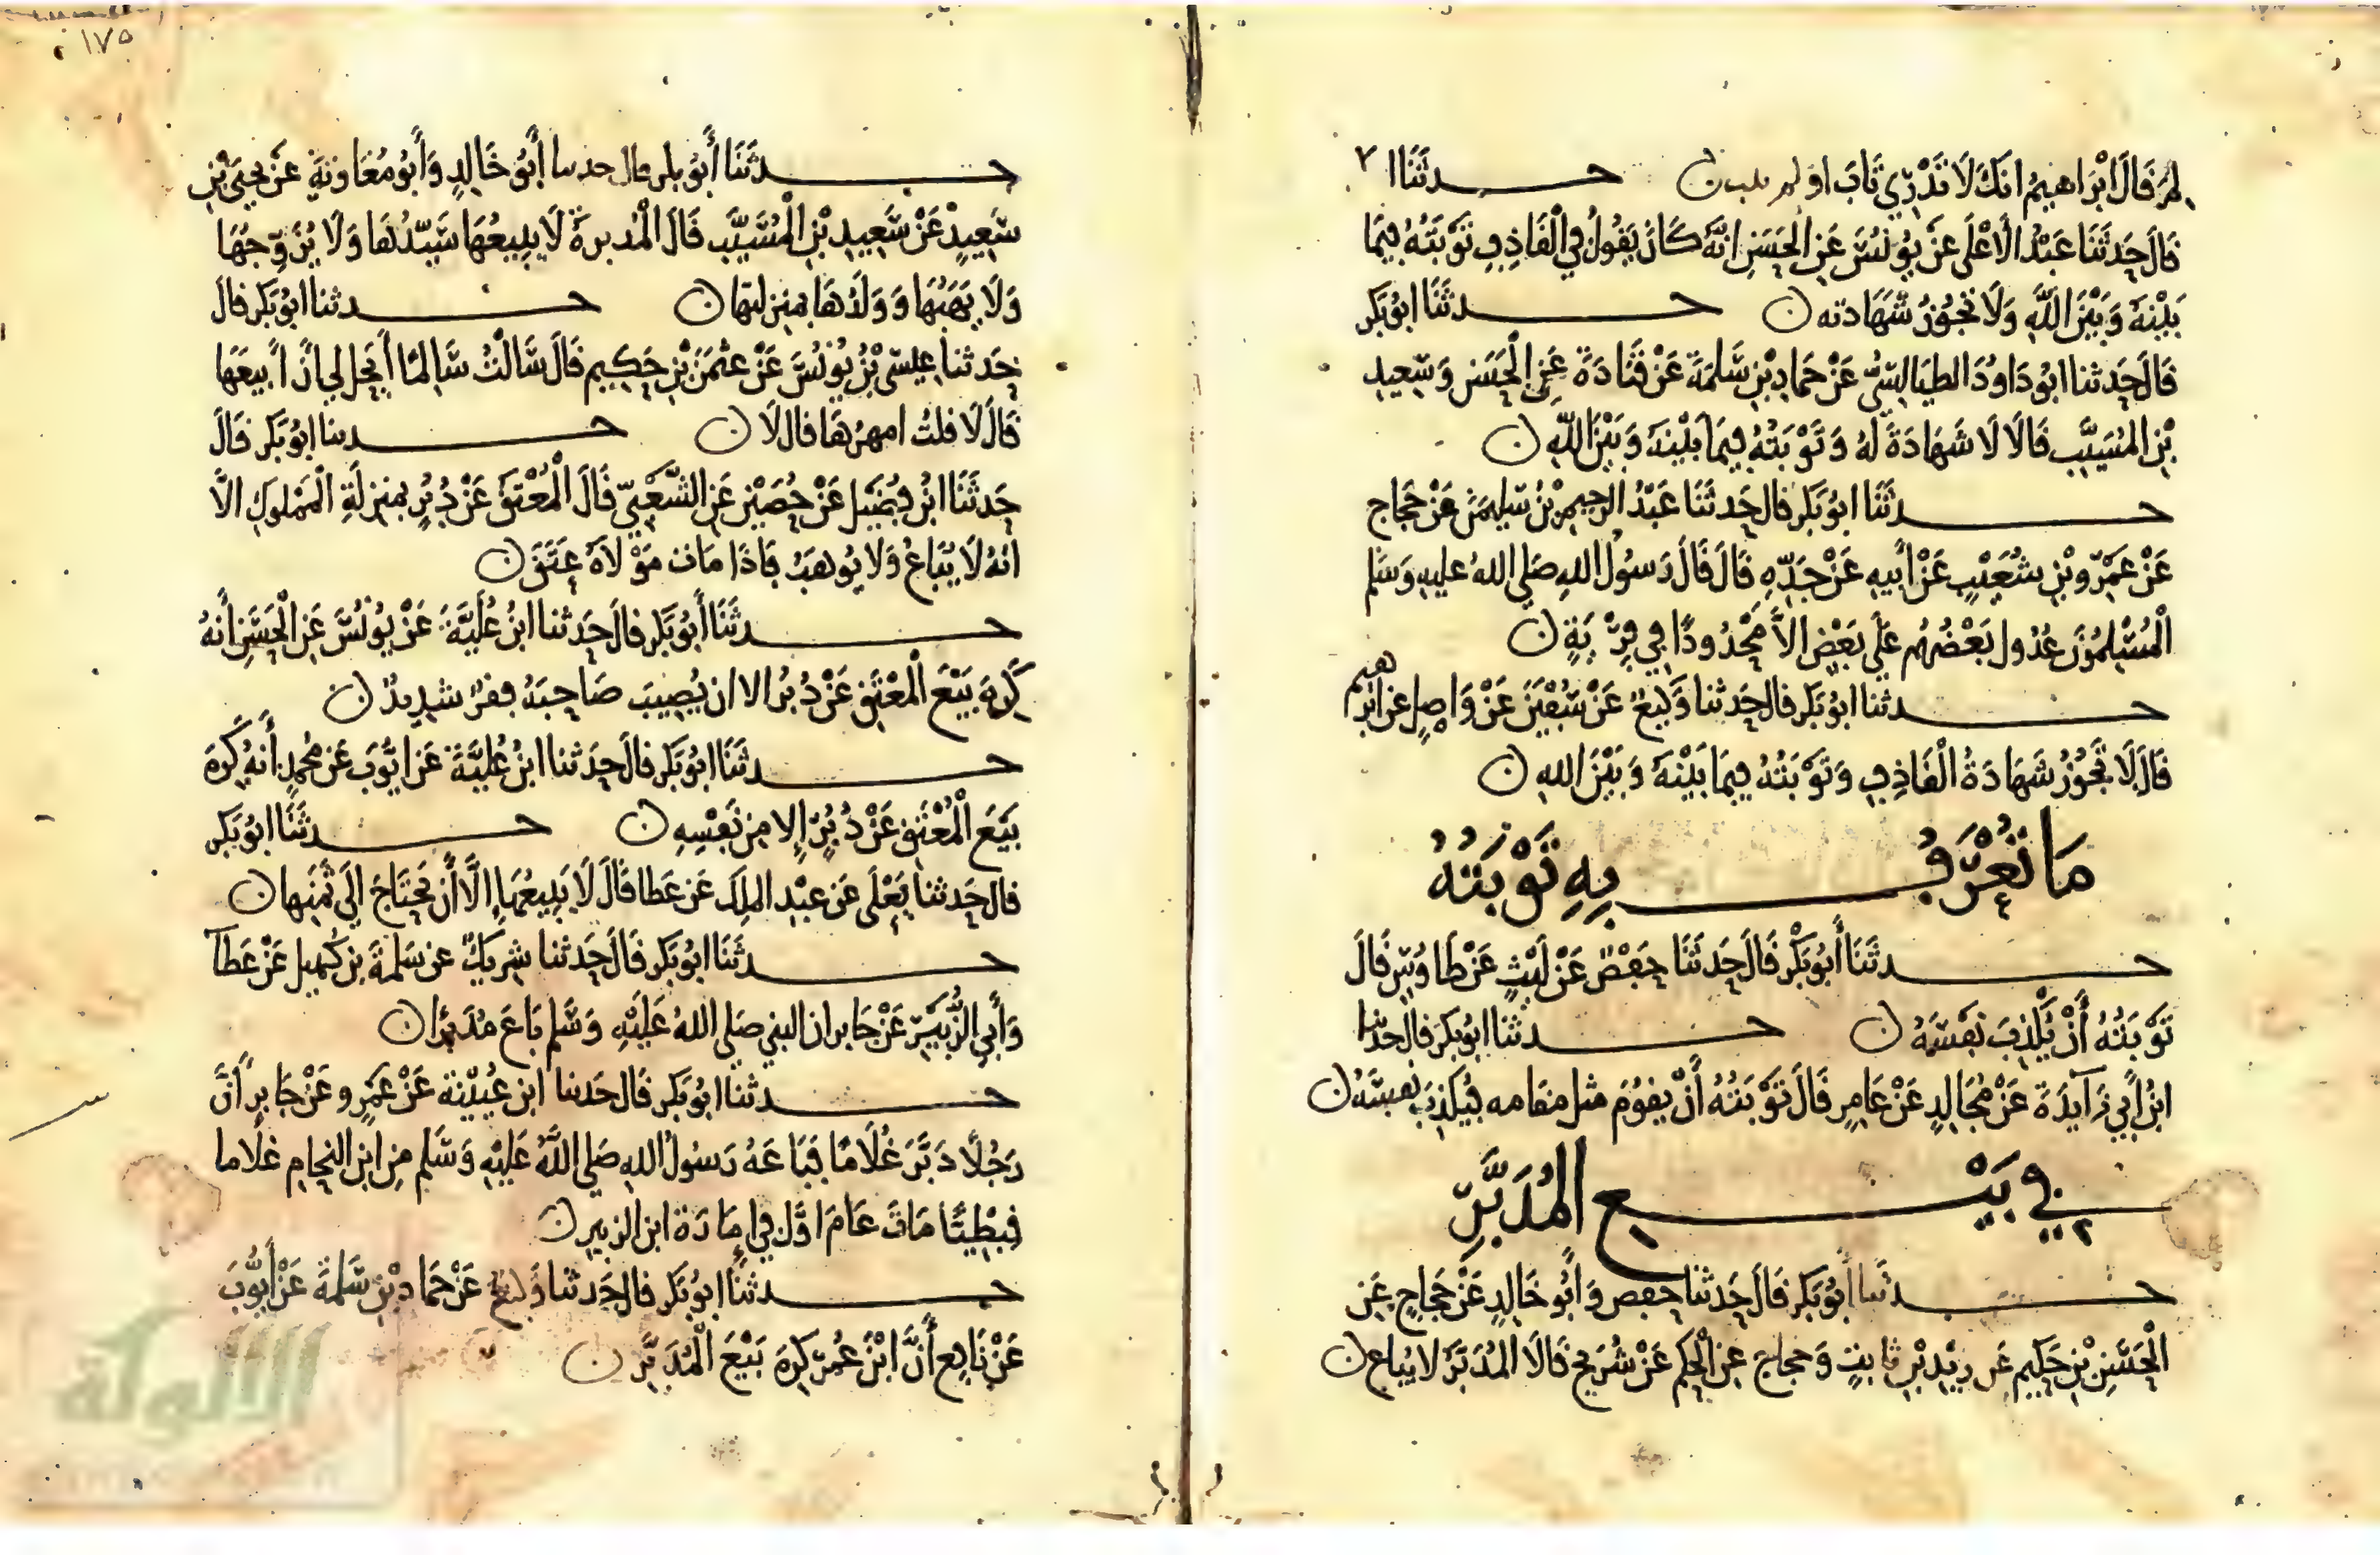 لم قال ابراهيم انك لا تدري تاب او لم يتب ن حدثنا ا
قال حدثنا عبد الأعلى عن يونس عن الحسن انه كان يقول في القاذف توبته فيما
بينه وبين الله ولا تجوز شهادته ن حدثنا ابو بكر
قال حدثنا ابو داود الطيالسي عن حماد بن سلمة عن قتادة عن الحسن وسعيد
بن المسيب قالا لا شهادة له وتوبته فيما بينه وبين الله ن
حدثنا ابو بكر قال حدثنا عبد الرحيم بن سليمن عن حجاج
عن عمرو بن شعيب عن أبيه عن جده قال قال رسول الله صلى الله عليه وسلم
المسلمون عدول بعضهم على بعض الا محدودا في فرية ن
حدثنا ابو بكر قال حدثنا وكيع عن سفين عن واصل عن ابرهيم
قال لا تجوز شهادة القاذف وتوبته فيما بينه وبين الله ن
ما تعرف به توبته
حدثنا أبو بكر قال حدثنا حفص عن ليث عن طاوس قال
توبته أن يكذب نفسه ن حدثنا ابو بكر قال حدثنا
ابن أبي زآيدة عن مجالد عن عامر قال توبته أن يقوم مثل مقامه فيكذب نفسه ن
في بيع المدبر
حدثنا أبو بكر قال حدثنا حفص وأبو خالد عن حجاج عن
الحسن بن حكيم عن زيد بن ثابت وحجاج عن الحكم عن شريح قالا المدبر لا يباع ن
١٧٥
حدثنا أبو بكر قال حدثنا أبو خالد وأبو معاوية عن يحيى بن
سعيد عن سعيد بن المسيب قال المدبرة لا يبيعها سيدها ولا يزوجها
ولا يهبها وولدها بمنزلتها ن حدثنا ابو بكر قال
حدثنا عيسى بن يونس عن عثمن بن حكيم قال سالت سالما أيحل لي أن أبيعها
قال لا قلت امهرها قال لا ن حدثنا ابو بكر قال
حدثنا ابن فضيل عن حصين عن الشعبي قال المعتق عن دبر بمنزلة المملوك الا
انه لا يباع ولا يوهب فاذا مات مولاه عتق ن
حدثنا أبو بكر قال حدثنا ابن علية عن يونس عن الحسن أنه
كره بيع المعتق عن دبر الا ان يصيب صاحبه فقر شديد ن
حدثنا ابو بكر قال حدثنا ابن علية عن ايوب عن محمد أنه كره
بيع المعتق عن دبر إلا من نفسه ن حدثنا ابو بكر
قال حدثنا يعلى عن عبد الملك عن عطا قال لا يبيعها إلا أن يحتاج الى ثمنها ن
حدثنا ابو بكر قال حدثنا شريك عن سلمة بن كهيل عن عطآ
وأبي الزبير عن جابر ان النبي صلى الله عليه وسلم باع مدبرا ن
حدثنا ابو بكر قال حدثنا ابن عيينة عن عمرو عن جابر أن
رجلا دبر غلاما فباعه رسول الله صلى الله عليه وسلم من ابن النحام غلاما
قبطيا مات عام اول في إمارة ابن الزبير ن
حدثنا ابو بكر قال حدثنا وكيع عن حماد بن سلمة عن أيوب
عن نافع أن ابن عمر كره بيع المدبر ن
الألوكة